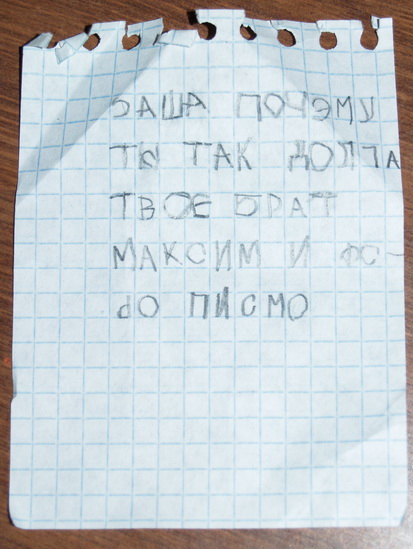 САША ПОЧЭМУ
ТЫ ТАК ДОЛГА
ТВОЕ БРАТ
МАКСИМ И ФС-
ЬО ПИСМО